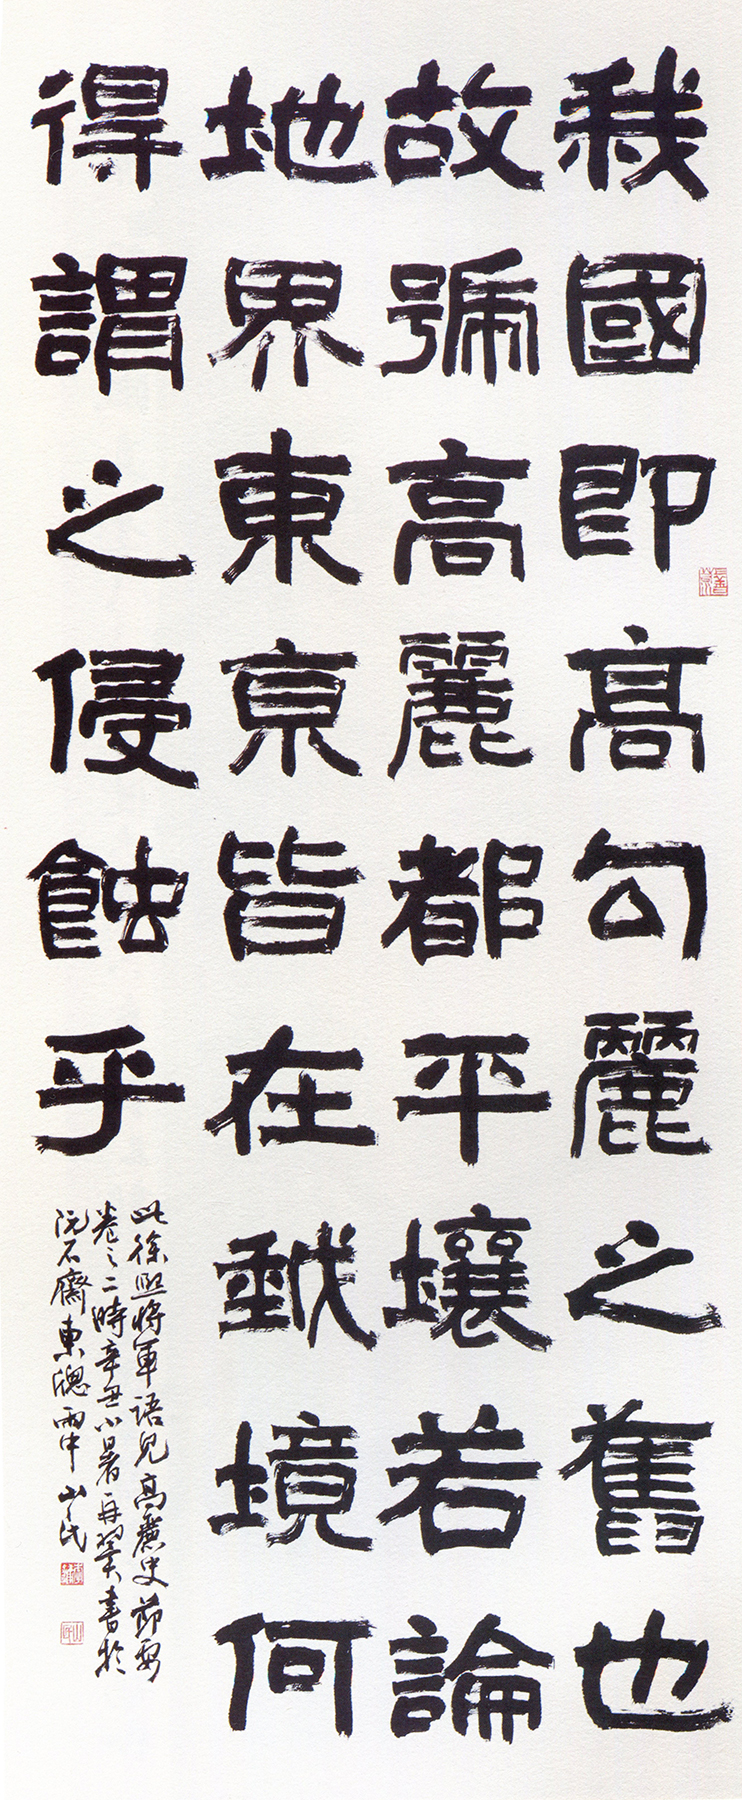 我國即高勾麗之舊也
故號高麗都平壤若論
地界東亰皆在我境何
得謂之侵蝕乎
此徐熙將軍語見高麗史節要
卷之二時辛丑小暑再翌書於
阮石齋東牕雨中 山民